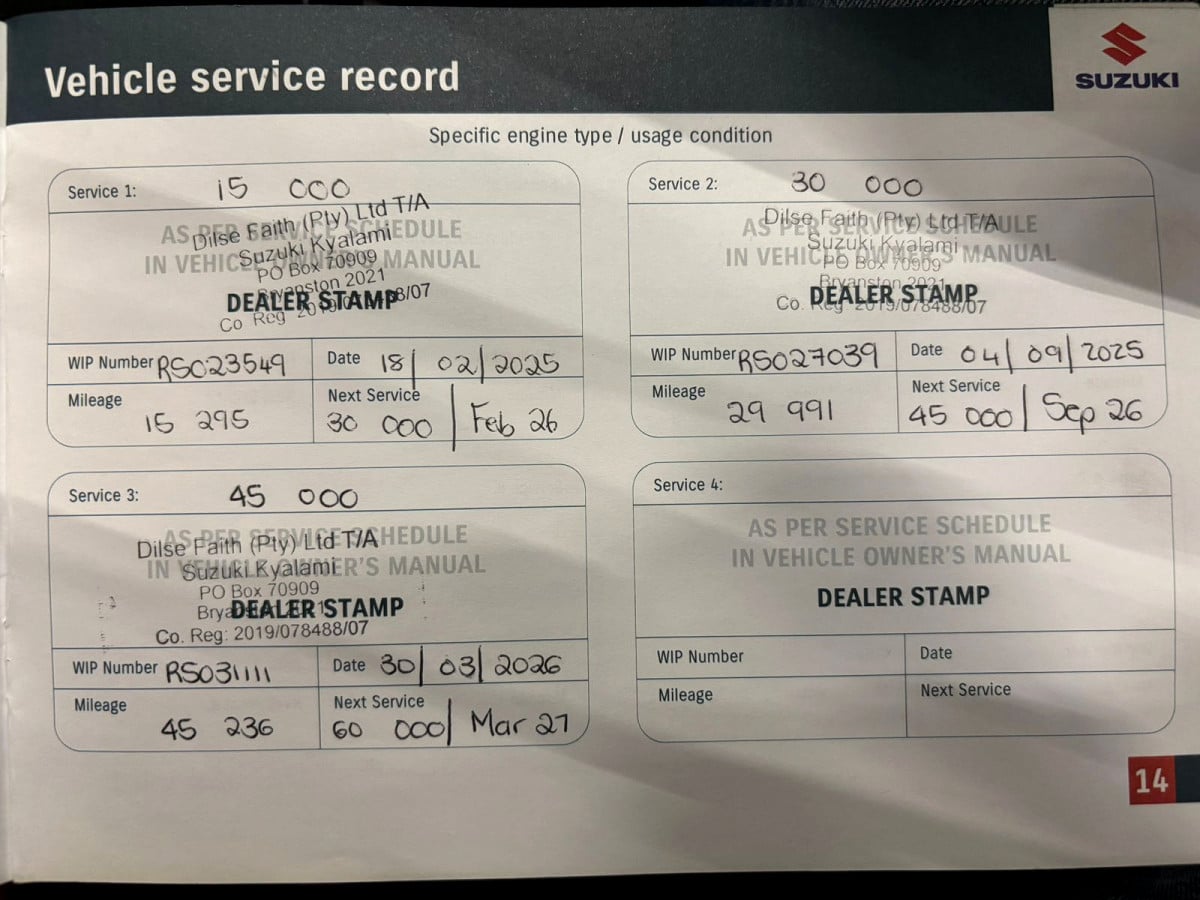 Vehicle service record
SUZUKI
Specific engine type / usage condition
Service 1: 15 000
AS PER SERVICE SCHEDULE
IN VEHICLE OWNER'S MANUAL
DEALER STAMP
Dilse Faith (Pty) Ltd T/A
Suzuki Kyalami
PO Box 70909
Bryanston 2021
Co Reg 2019/078488/07
WIP Number RS023549
Date 18/02/2025
Mileage
15 295
Next Service
30 000 / Feb 26
Service 2: 30 000
AS PER SERVICE SCHEDULE
IN VEHICLE OWNER'S MANUAL
DEALER STAMP
Dilse Faith (Pty) Ltd T/A
Suzuki Kyalami
PO Box 70909
Bryanston 2021
Co. Reg 2019/078488/07
WIP Number RS027039
Date 04/09/2025
Mileage
29 991
Next Service
45 000 / Sep 26
Service 3: 45 000
AS PER SERVICE SCHEDULE
IN VEHICLE OWNER'S MANUAL
DEALER STAMP
Dilse Faith (Pty) Ltd T/A
Suzuki Kyalami
PO Box 70909
Co. Reg: 2019/078488/07
WIP Number RS031111
Date 30/03/2026
Mileage
45 236
Next Service
60 000 / Mar 27
Service 4:
AS PER SERVICE SCHEDULE
IN VEHICLE OWNER'S MANUAL
DEALER STAMP
WIP Number
Date
Mileage
Next Service
14